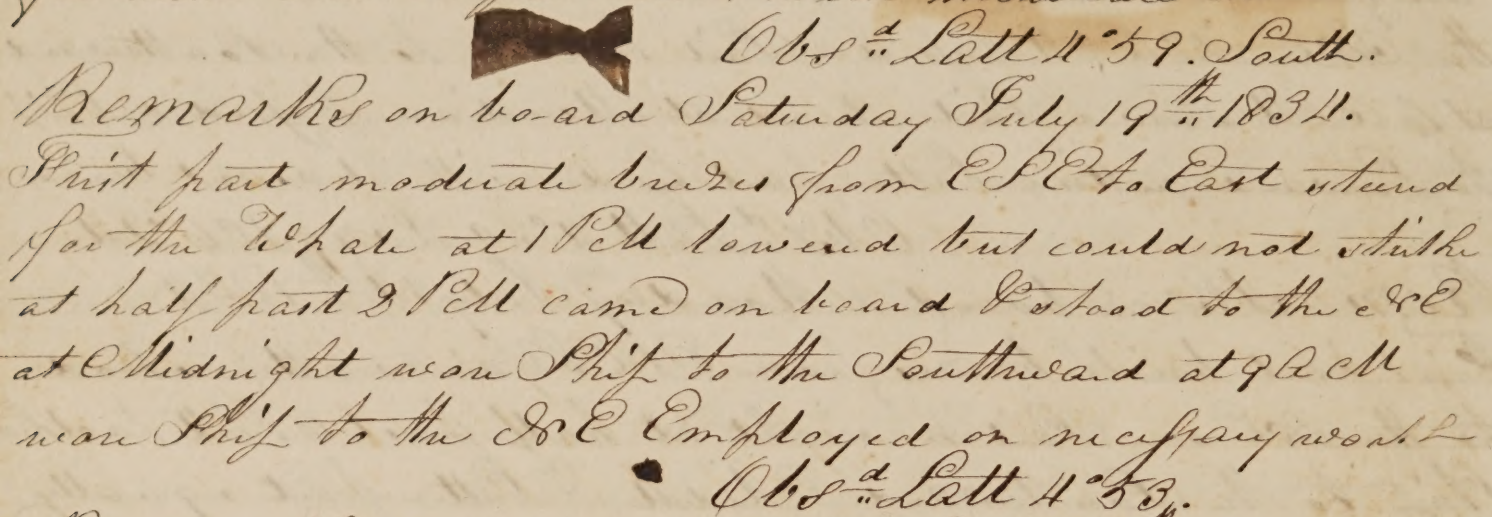 Obsᵈ Latt 4°59. South.
Remarks on board Saturday July 19ᵗʰ 1834.
First part moderate breezes from ESE to East steerd
for the Whale at 1 PM lowered but could not strike
at half past 2 PM came on board & stood to the NE
at Midnight wore Ship to the Southward at 9 AM
wore Ship to the NE Employed on necessary work
Obsᵈ Latt 4°53.